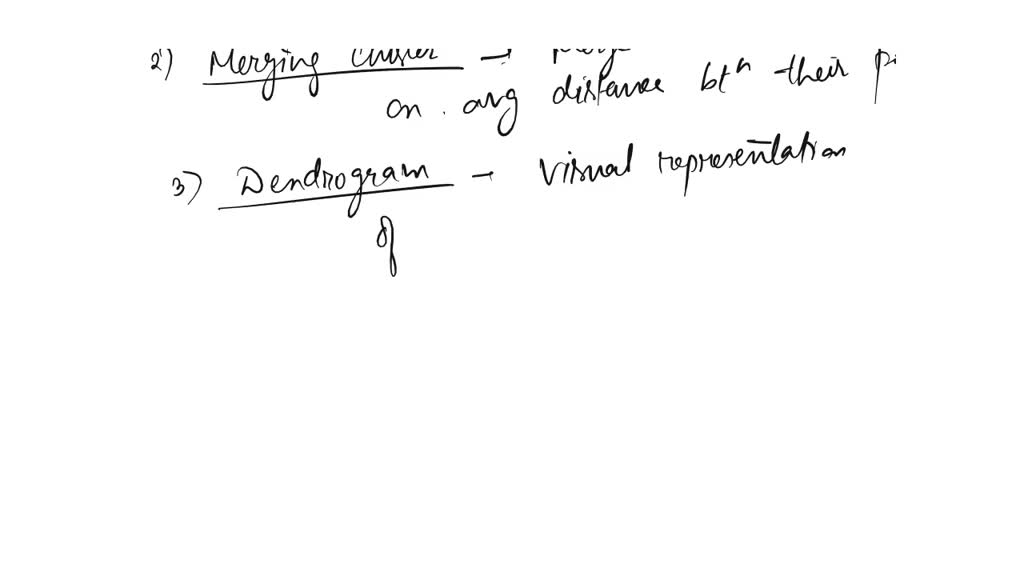 2) Merging Cluster →
on . avg distance btn their
3) Dendrogram → Visual representation
of